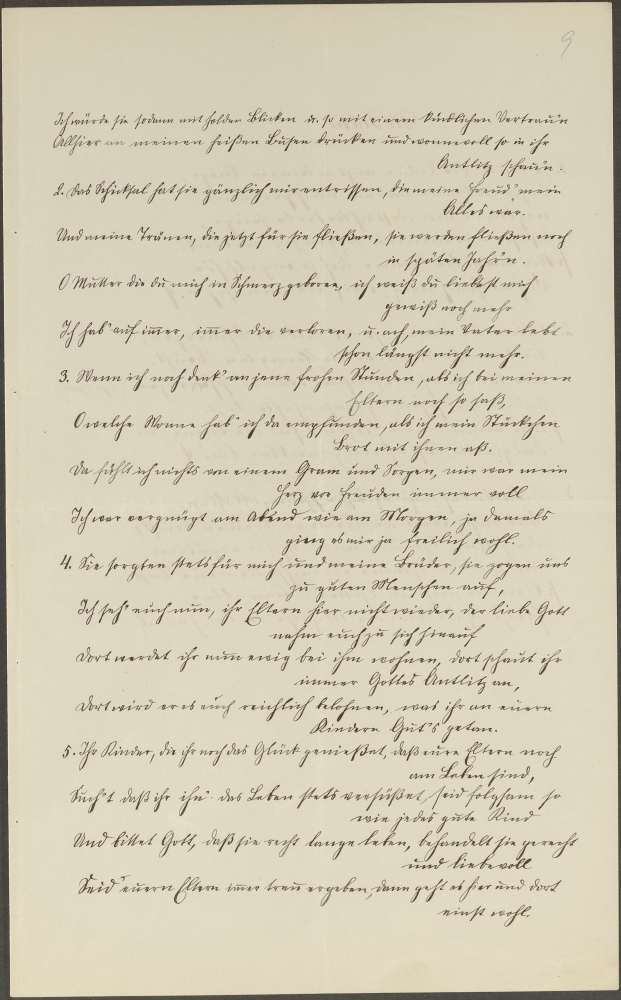 9
Ich würde sie sodann mit holden Blicken u. so mit einem kindlichen Vertrau'n
Allhier an meinen heißen Busen drücken und wonnevoll so in ihr
Antlitz schau'n.
2. Das Schicksal hat sie gänzlich mir entrissen, die meine Freud' mein
Alles war.
Und meine Tränen, die jetzt für sie fließen, sie werden fließen noch
in späten Jahr'n.
O Mutter die du mich in Schmerz geboren, ich weiß du liebst mich
gewiß noch mehr
Ich hab' auf immer, immer die verloren, u. ach, mein Vater lebt
schon längst nicht mehr.
3. Wenn ich noch denk' an jene frohen Stunden, als ich bei meinen
Eltern noch so saß,
O welche Wonne hab' ich da empfunden, als ich mein Stückchen
Brot mit ihnen aß.
Da fühlt ich nichts von einem Gram und Sorgen, mir war mein
Herz vor Freuden immer voll
Ich war vergnügt am Abend wie am Morgen, ja damals
gieng es mir ja freilich wohl.
4. Sie sorgten stets für mich und meine Brüder, sie zogen uns
zu guten Menschen auf,
Ich seh' euch nun, ihr Eltern hier nicht wieder, der liebe Gott
nahm euch zu sich hinauf
Dort werdet ihr nun ewig bei ihm wohnen, dort schaut ihr
immer Gottes Antlitz an,
Dort wird er es euch reichlich belohnen, was ihr an euern
Kindern Gut's getan.
5. Ihr Kinder, die ihr noch das Glück genießet, daß eure Eltern noch
am Leben sind,
Such't daß ihr ihn' das Leben stets versüßet, seid folgsam so
wie jedes gute Kind
Und bittet Gott, daß sie recht lange leben, behandelt sie gerecht
und liebevoll
Seid euern Eltern immer treu ergeben, dann geht es hier und dort
einst wohl.